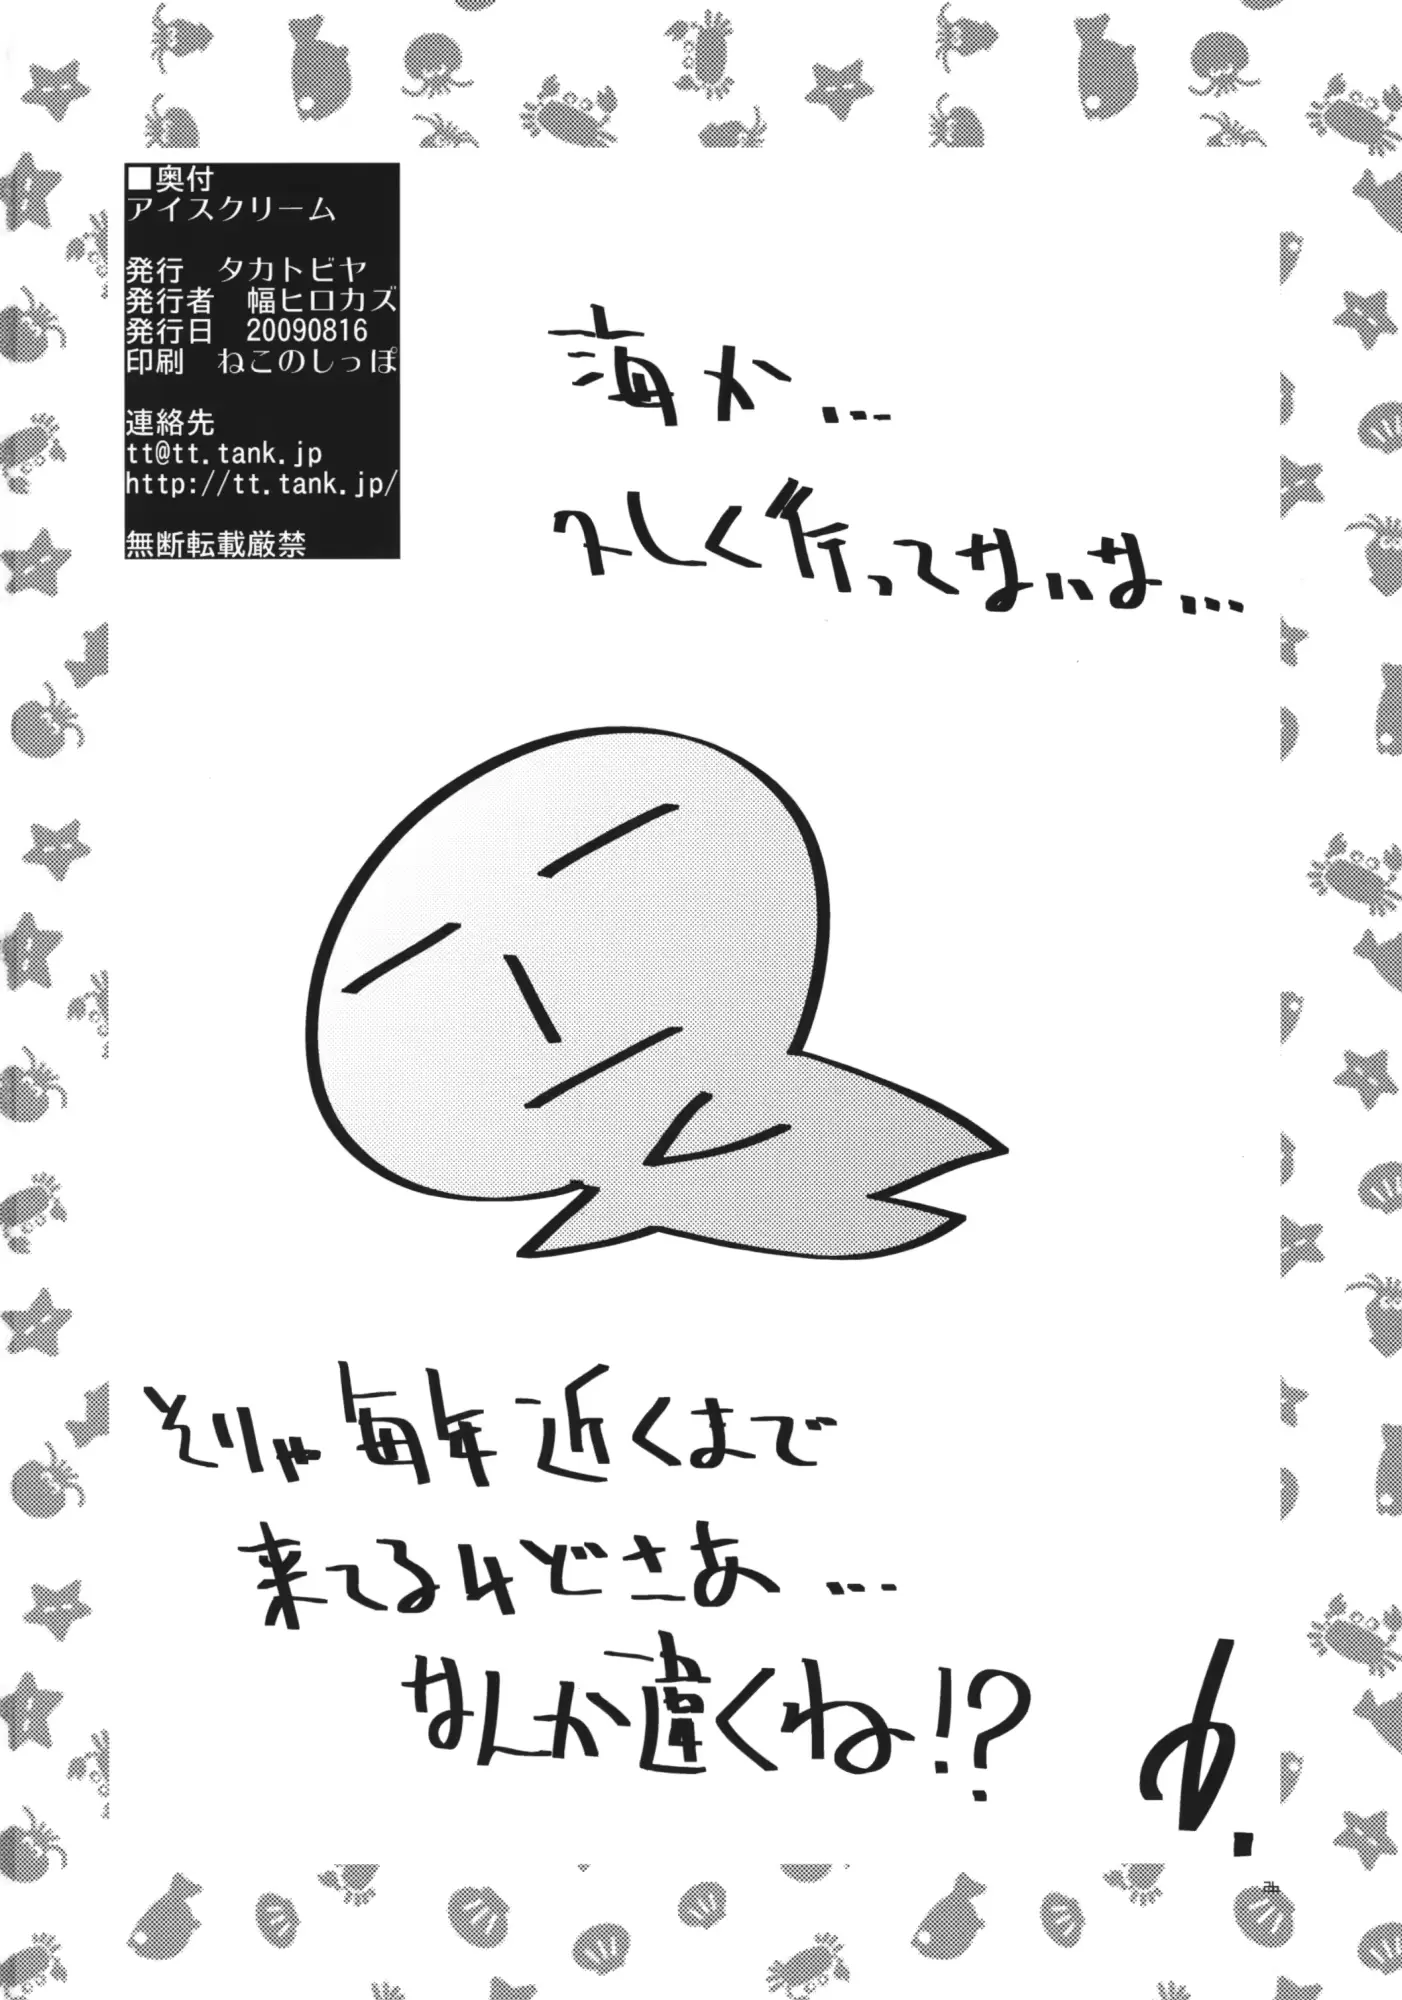 ■奥付
アイスクリーム
発行　タカトビヤ
発行者　幅ヒロカズ
発行日　20090816
印刷　ねこのしっぽ
連絡先
tt@tt.tank.jp
http://tt.tank.jp/
無断転載厳禁
海か…
久しく行ってないな…
そりゃ毎年近くまで
来てるけどさぁ…
なんか違くね!?